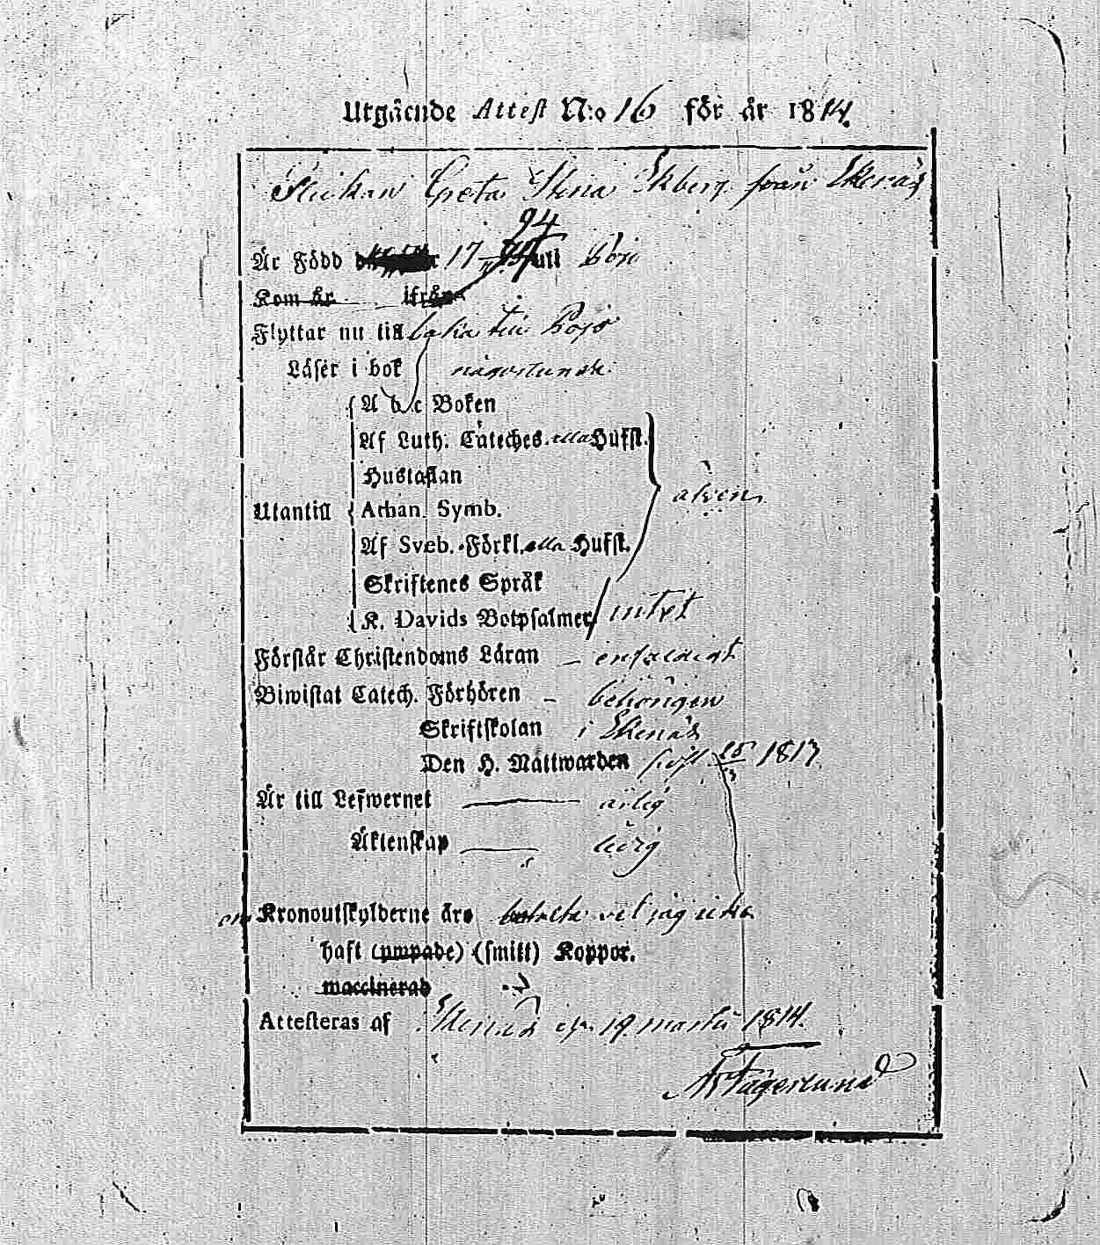 Utgående Attest N:o 16 för år 1814.
Pickan Greta Stina Ekberg från Ekenäs
94
Är Född 17 uti Bojo
Kom år ifrån
Flyttar nu till baka till Bojo
Läser i bok någorlunda
A b c Boken
Af Luth. Cateches. alla Hufst.
Hustaflan
Utantill Athan. Symb. äfven
Af Sveb. Förkl. alla Hufst.
Skriftenes Språk
K. Davids Botpsalmer intet
Förstår Christendoms Läran — enfaldigt
Biwistat Catech. Förhören — behörigen
Skriftskolan i Ekenäs
Den H. Nattwarden sist 1813
Är till Lefwernet — ärlig
Äktenskap — ledig
om Kronoutskylderne äro betalta vet jag icke
haft (ympade) (smitt) Koppor.
waccinerad
Attesteras af Ekenäs 19 martii 1814.
Fagerlund